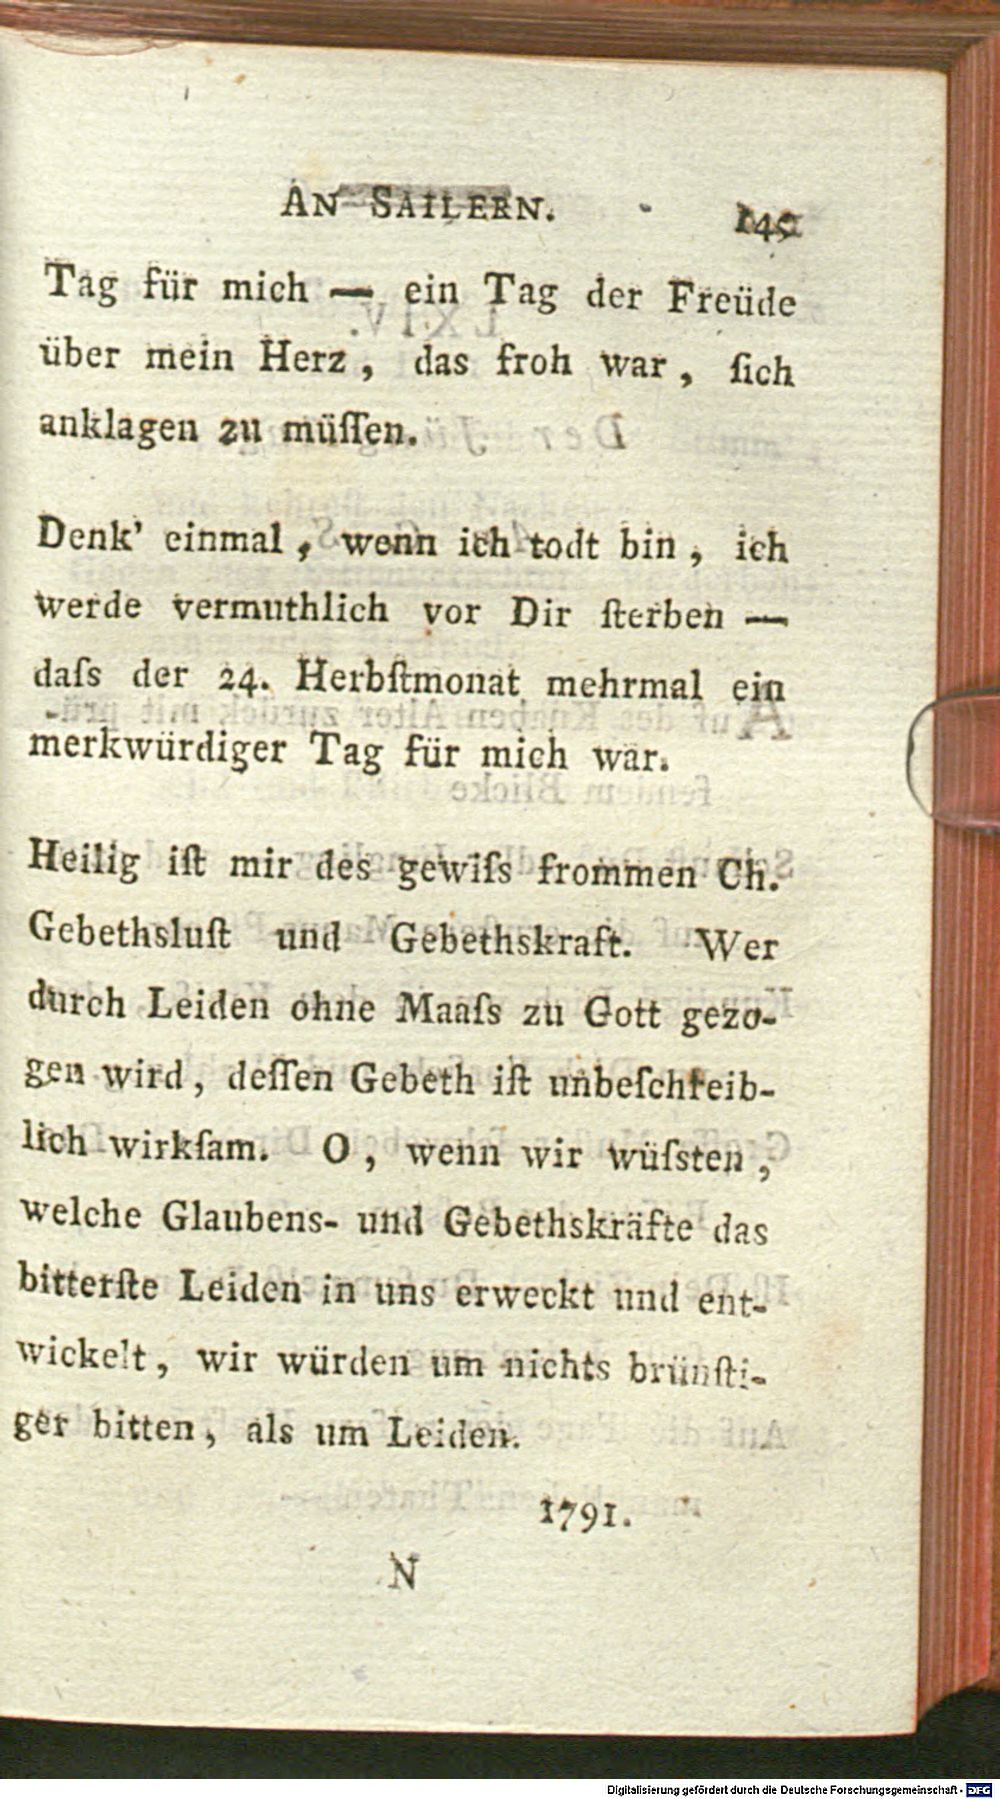 AN SAILERN. 145
Tag für mich — ein Tag der Freüde
über mein Herz, das froh war, ſich
anklagen zu müſſen.
Denk' einmal, wenn ich todt bin, ich
werde vermuthlich vor Dir ſterben —
daſs der 24. Herbſtmonat mehrmal ein
merkwürdiger Tag für mich war.
Heilig iſt mir des gewiſs frommen Ch.
Gebethsluſt und Gebethskraft. Wer
durch Leiden ohne Maaſs zu Gott gezo-
gen wird, deſſen Gebeth iſt unbeſchreib-
lich wirkſam. O, wenn wir wüſsten,
welche Glaubens- und Gebethskräfte das
bitterſte Leiden in uns erweckt und ent-
wickelt, wir würden um nichts brünſti-
ger bitten, als um Leiden.
1791.
N
Digitalisierung gefördert durch die Deutsche Forschungsgemeinschaft - DFG